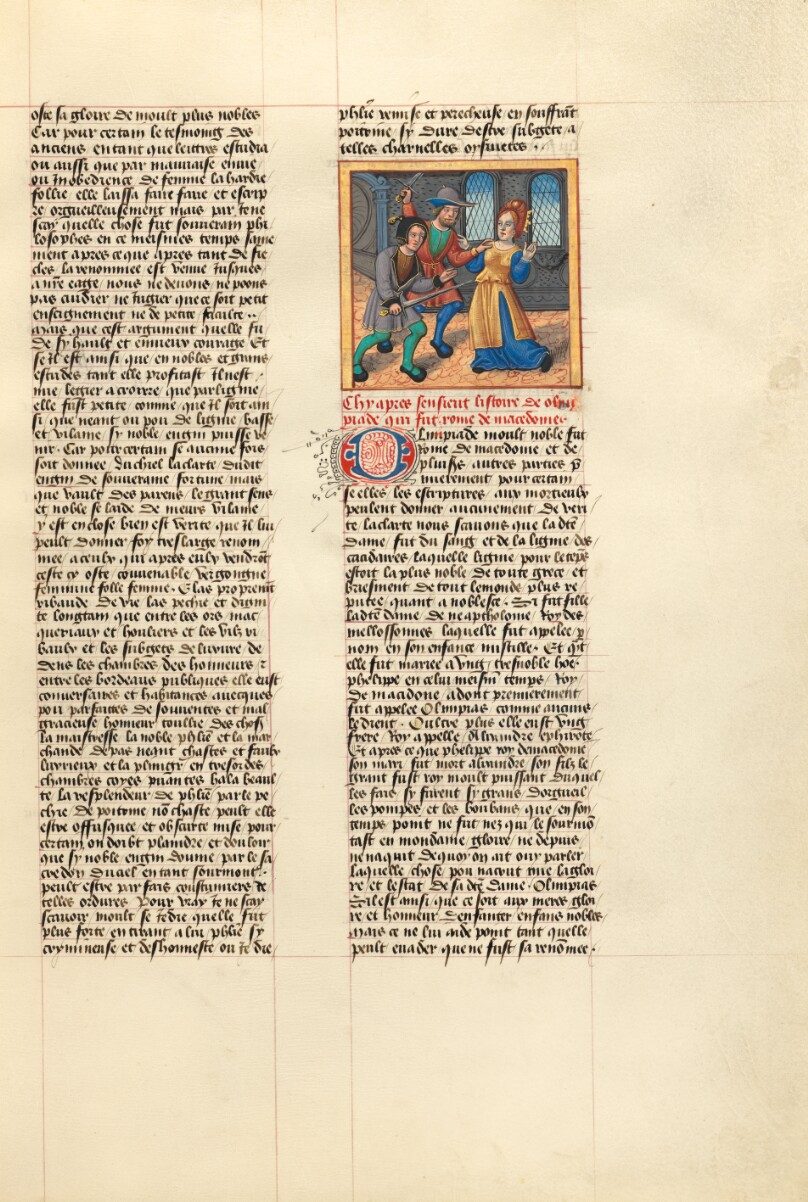 oste sa gloire de moult plus nobles
Car pour certain le tesmoing des
anciens entant que lettres estudia
ou aussi que par mauuaise enuie
ou Inobedience de femme la hardie
follie elle laissa faire et escrip
re orgueilleusement mais par Ie ne
scay quelle chose fut souuerain phi
losophes en ce meismes temps saine
ment apres ce que apres tant de sie
cles la renommee est venue Iusques
a nr̄e eage nous ne deuons ne poons
pas cuidier ne Iugier que ce soit petit
enseignement ne de petite faculte
mais que cest argument quelle fu
de sy hault et enuieux courage Et
se Il est ainsi que en nobles et grans
estudes tant elle profitast Il nest
mie legier a croirre que par ligniee
elle fust petite comme que Il soit ain
si que neant ou pou de lignie basse
et vilaine sy noble engin puisse ve
nir Car pour certain se aucune fois
soit donnee du ciel la clarte dudit
engin de souueraine fortune mais
que vault des parens le grant sens
et noble se laide de meurs vilaine
y est enclose bien est verite que Il lui
peult donner foy tres large renom
mee a ceulx qui apres eulx vendrōt
ceste cy oste couuenable vergongne
feminine folle femme Elas proprem̄t
ribaude de vie las pechie et digni
te longtam que entre les ors mac
queriaux et houliers et les vilz ri
baulx et les subgets de luxure de
dens les chambres des honneurs
entre les bordeaux publiques elle eust
conuersaires et habitances auecques
pou parfaictes de souuentes et mal
gracieuse honneur toullie des choses
la maistresse la noble phl̄ie et la mar
chande de pas neant chastes et faulx
luxrieux et la plungir en tresordes
chambres coyes puantes ha la beaul
te la resplendeur de phl̄ie par le pe
chie de poitrine nō chaste peult elle
estre offusquee et obscurte mise pour
certain on doibt plaindre et douloir
que sy noble engin donne par le sa
cre don du ciel en tant sourmont
peult estre par fais coustumiers de
telles ordures Pour vray Ie ne scay
scauoir moult se Ie die quelle fut
plus forte en tirant a lui phl̄ie sy
crymineuse et deshonneste ou Ie die
phl̄ie remise et perecheuse en souffrāt
poitrine sy dure destre subgete a
telles charnelles orsuretes
Chy apres sensieut listoire de olim
piade qui fut roine de macedoines
Olimpiade moult noble fut
roine de macedoine et de
pluise autres parties p̄
mierement pour certain
se elles les escriptures aux mortieulx
peulent donner aucunement de veri
te la clarte nous scauons que la dte
dame fut du sang et de la lignie des
caadaires laquelle lignie pour le teps
estoit la plus noble de toute grece et
briefment de tout le monde plus re
putee quant a noblesce Et fut fille
la dte dame de neaptholome roy des
mellossonnes laquelle fut appelee p̄
nom en son enfance mistille Et qn̄t
elle fut mariee a vng tresnoble hōe
phelippe en celui meisme temps Roy
de macedone adont premierement
fut appelee Olimpias comme aucuns
le dient Oultre plus elle eust vng
frere Roy appelle Alixandre ephirote
Et apres ce que phelippe roy de macedone
son mari fut mort alixandre son filz le
grant fust roy moult puissant duquel
les fais sy furent sy grans dorgueil
les pompes et les boubans que en son
temps point ne fut nez qui le sourmō
tast en mondaine gloire ne depuis
ne naquit de quoy on ait ouy parler
laquelle chose pou nacrut mie la gloi
re et lestat de sa dte dame Olimpias
Sil est ainsi que ce soit aux meres gloi
re et honneur denfanter enfans nobles
mais ce ne lui aide point tant quelle
peult euader que ne fust sa renōmee